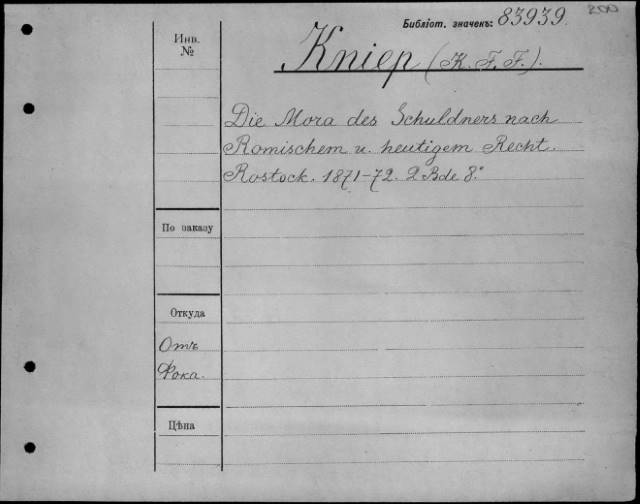 200
Библіот. значекъ: 83939.
Инв.
№
Kniep (K. F. F.).
Die Mora des Schuldners nach
Romischem u. heutigem Recht.
Rostock. 1871-72. 2 Bde 8.º
По заказу
Откуда
Отъ
Фока.
Цѣна